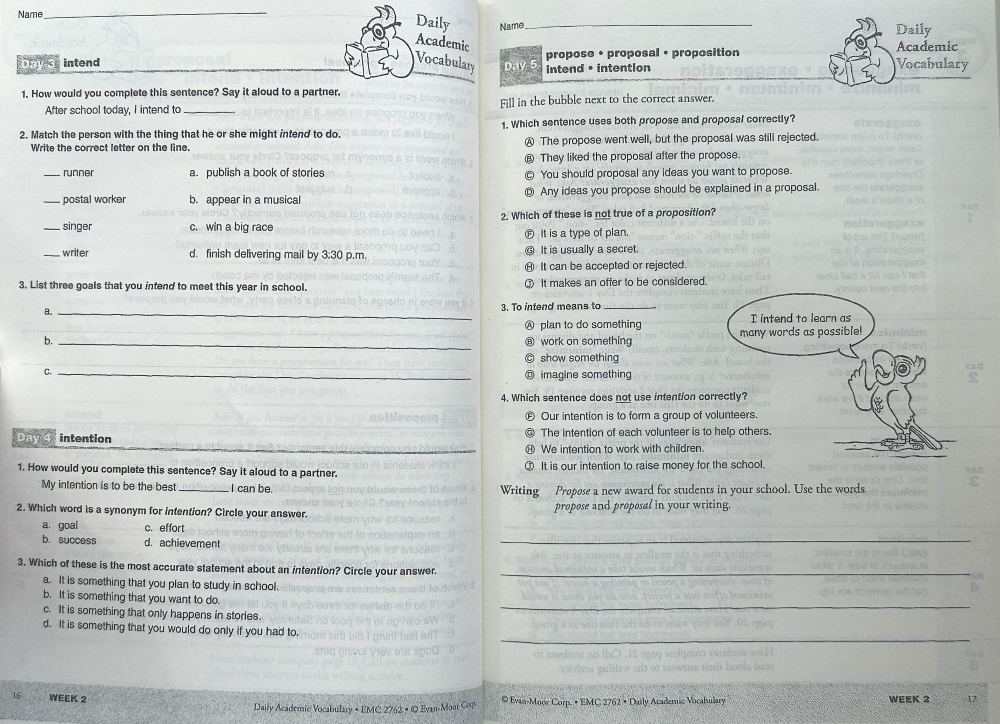 Name
Daily
Academic
Vocabulary
Day 3 intend
1. How would you complete this sentence? Say it aloud to a partner.
After school today, I intend to ________.
2. Match the person with the thing that he or she might intend to do.
Write the correct letter on the line.
___ runner a. publish a book of stories
___ postal worker b. appear in a musical
___ singer c. win a big race
___ writer d. finish delivering mail by 3:30 p.m.
3. List three goals that you intend to meet this year in school.
a.
b.
c.
Day 4 intention
1. How would you complete this sentence? Say it aloud to a partner.
My intention is to be the best ________ I can be.
2. Which word is a synonym for intention? Circle your answer.
a. goal c. effort
b. success d. achievement
3. Which of these is the most accurate statement about an intention? Circle your answer.
a. It is something that you plan to study in school.
b. It is something that you want to do.
c. It is something that only happens in stories.
d. It is something that you would do only if you had to.
16 WEEK 2 Daily Academic Vocabulary • EMC 2762 • © Evan-Moor Corp.
Name
Daily
Academic
Vocabulary
Day 5 propose • proposal • proposition
intend • intention
Fill in the bubble next to the correct answer.
1. Which sentence uses both propose and proposal correctly?
Ⓐ The propose went well, but the proposal was still rejected.
Ⓑ They liked the proposal after the propose.
Ⓒ You should proposal any ideas you want to propose.
Ⓓ Any ideas you propose should be explained in a proposal.
2. Which of these is not true of a proposition?
Ⓕ It is a type of plan.
Ⓖ It is usually a secret.
Ⓗ It can be accepted or rejected.
Ⓙ It makes an offer to be considered.
3. To intend means to ________.
Ⓐ plan to do something
Ⓑ work on something
Ⓒ show something
Ⓓ imagine something
I intend to learn as
many words as possible!
4. Which sentence does not use intention correctly?
Ⓕ Our intention is to form a group of volunteers.
Ⓖ The intention of each volunteer is to help others.
Ⓗ We intention to work with children.
Ⓙ It is our intention to raise money for the school.
Writing Propose a new award for students in your school. Use the words
propose and proposal in your writing.
© Evan-Moor Corp. • EMC 2762 • Daily Academic Vocabulary WEEK 2 17